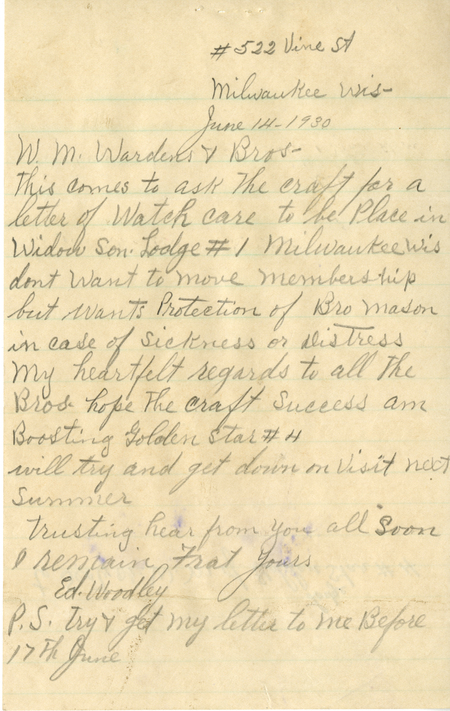 # 522 Vine St
Milwaukee Wis-
June 14-1930
W. M. Wardens & Bros-
This comes to ask The craft for a
letter of Watch care to be Place in
Widow Son. Lodge # 1 Milwaukee Wis
dont Want to move membership
but wants Protection of Bro mason
in case of Sickness or Distress
My heartfelt regards to all The
Bros hope The craft Success am
Boosting Golden Star # 4
will try and get down on visit next
Summer
trusting hear from you all Soon
I remain Frat Yours
Ed. Woodley
P.S. Try & get my letter to me Before
17th June